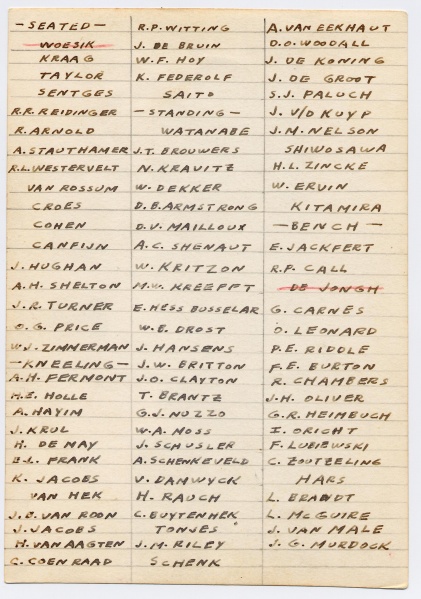 — SEATED —
WOESIK
KRAAG
TAYLOR
SENTGES
R.R. REIDINGER
R. ARNOLD
A. STAUTHAMER
R.L. WESTERVELT
VAN ROSSUM
CROES
COHEN
CANFIJN
J. HUGHAN
A.H. SHELTON
J.R. TURNER
O.G. PRICE
W.J. ZIMMERMAN
— KNEELING —
A.H. FERMONT
H.E. HOLLE
A. HAYIM
J. KRUL
H. DE MAY
E.L. FRANK
K. JACOBS
VAN HEK
J.B. VAN ROON
J. JACOBS
H. VAN AAGTEN
C. COENRAAD
R.P. WITTING
J. DE BRUIN
W.F. HOY
K. FEDEROLF
SAITO
— STANDING —
WATANABE
J.T. BROUWERS
N. KRAVITZ
W. DEKKER
D.B. ARMSTRONG
D.V. MAILLOUX
A.C. SHENAUT
W. KRITZON
M.W. KREEFFT
E. HESS BUSSELAR
W.E. DROST
J. HANSENS
J.W. BRITTON
J.O. CLAYTON
T. BRANTZ
G.J. NUZZO
W.A. MOSS
J. SCHUSLER
A. SCHENKEVELD
V. DAMWYCK
H. RAUCH
C. BUYTENHEK
TONJES
J.M. RILEY
SCHENK
A. VAN EEKHAUT
D.O. WOODALL
J. DE KONING
J. DE GROOT
S.J. PALUCH
J. V/D KUYP
J.M. NELSON
SHIWOSAWA
H.L. ZINCKE
W. ERVIN
KITAMIRA
— BENCH —
E. JACKFERT
R.P. CALL
DE JONGH
G. CARNES
O. LEONARD
P.E. RIDDLE
F.E. BURTON
R. CHAMBERS
J.H. OLIVER
G.R. HEIMBUCH
I. ORICHT
F. LUBIEWSKI
C. ZOUTZELING
HARS
L. BRANDT
L. McGUIRE
J. VAN MALE
J.G. MURDOCK